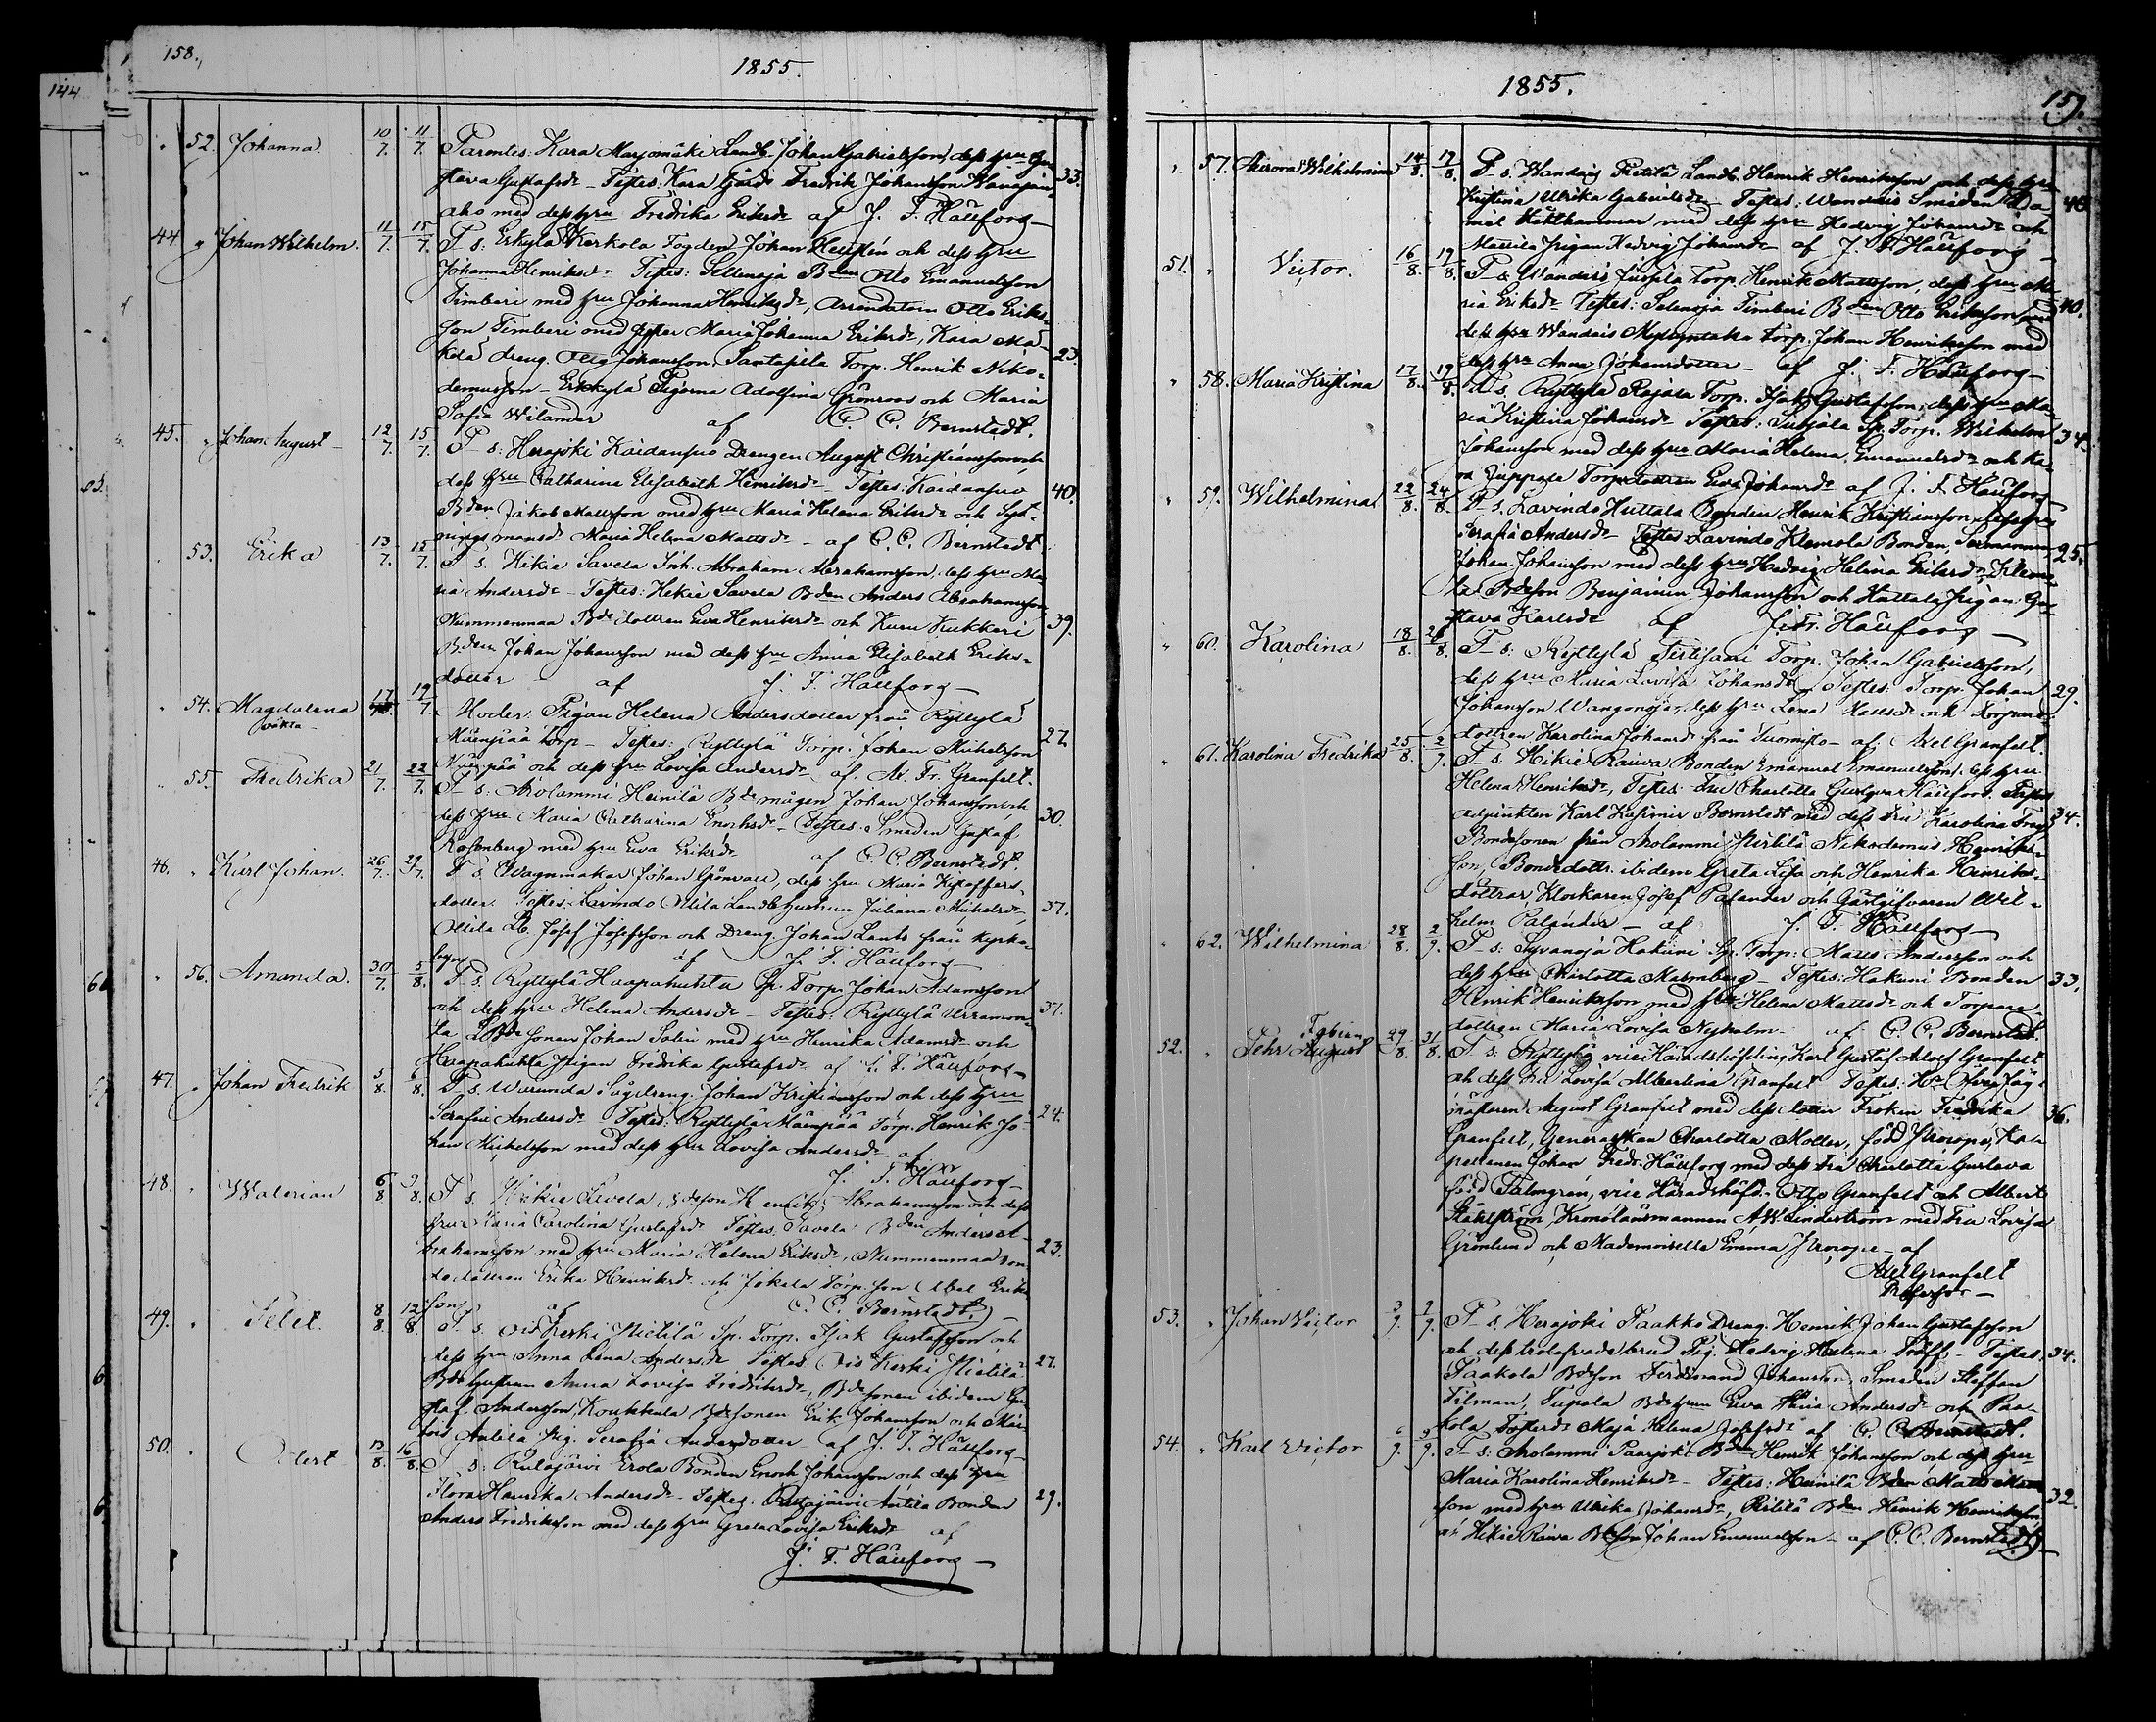 144
158.
1855.
52. Johanna. 10/7. 11/7. Parentes: Kara Marjomäki Landb. Johan Gabrielsson, dess hru Gus-
tava Gustafsdr - Testes: Kara Gårds Fredrik Johansson 33.
aho med dess hru Fredrika Eriksdr af J. F. Hällfors -
44 " Johan Wilhelm. 11/7. 15/7. P-s: Erkylä Kerkola Fogden Johan och dess hru
Johanna Henriksdr Testes: Selänoja Bden Otto Emanuelsson
Timberi med hru Johanna Henriksdr, Arrendatorn Otto Eriks-
son Timberi med Maria Johanna Eriksdr, Kara
dreng. Otto Johansson, Torp. Henrik Niko- 23.
demusson - Erkkylä Pigorna Adolfina Grönroos och Maria
Sofia Wilander af C. C. Bernstedt.
45. " Johan August - 12/7. 15/7. P-s: Herajoki Kaidanpuo Drengen August Christiansson och
dess hru Catharina Elisabeth Henriksdr Testes: Kaidanpuo 40.
Bden Jakob Mattsson med hru Maria Helena Eriksdr och Sytt-
ningsmansd Maria Helena Mattsdr - af C. C. Bernstedt
53. Erika 13/7. 15/7. P-s. Hikiä Savela Inh. Abraham Abrahamsson, dess hru Ma-
ria Andersdr - Testes: Hikiä Savela Bden Anders Abrahamsson,
Nummenmaa Bdedottren Eva Henriksdr och Kuru Kukkari 39.
Bden Johan Johansson med dess hru Anna Elisabeth Eriks-
dotter - af J. F. Hällfors -
54. Magdalena oäkta 17/7. 19/7. Moder. Pigan Helena Andersdotter från Ryttylä
Mäenpää Torp - Testes: Ryttylä Torp. Johan Mikelsson 27.
Mäenpää och dess hru Lovisa Andersdr. af. Ax. Fr. Granfelt.
55. Fredrika 21/7. 22/7. P-s: Arolammi Heinilä Bdemågen Johan Johansson och
dess hru Maria Catharina Enochsdr - Testes: Smeden Gustaf 30.
Rosenberg med hru Eva Eriksdr af C. C. Bernstedt.
46. " Karl Johan. 26/7. 29/7. P-s. Wagnmakar Johan Grönvall, dess hru Maria Kristoffers-
dotter. Testes: Lavindo Ollila Landb.hustrun Juliana Mikelsdr, 37.
Ollila Lb. Josef Josefsson och Dreng. Johan Lants från Kyrko-
byn af J. F. Hällfors
56. Amanda. 30/7. 5/8. P-s. Ryttylä Haapahuhta Sp. Torp. Johan Adamsson
och dess hru Helena Andersdr - Testes: Ryttylä 31.
Sonen Johan Salin med hru Henrika Adamsdr och
Haapahuhta Pigan Fredrika Gustafsdr af J. F. Hällfors -
47. " Johan Fredrik 5/8. 6/8. P-s. Wurunda Sågdreng. Johan Kristiansson och dess hru
Serafia Andersdr - Testes: Ryttylä Mäenpää Torp. Henrik Jo- 24.
han Mickelsson med dess hru Lovisa Andersdr - af
J. F. Hällfors -
48. " Walerian 6/8 9/8. P-s. Hikiä Savela Bdeson Henrik Abrahamsson och dess
hru Maria Carolina Gustafsdr Testes. Savela Bden Anders A-
brahamsson med hru Maria Helena Eriksdr, Nummenmaa Bon- 23.
dedottren Erika Henriksdr och Jokela Torp.son Abel Eriks-
son af C. C. Bernstedt -
49. " 8/8. 12/8. P-s. Oiskoski Hietilä Sp. Torp. Isak Gustafsson och
dess hru Anna Lena Andersdr Testes: Oiskoski Hietilä 27.
Bdehustrun Anna Lovisa Fredriksdr, Bdesonen ibidem Gu-
staf Andersson, Koukkula Bdesonen Erik Johansson och
Anttila Pig. Serafia Andersdotter af J. F. Hällfors -
50. " 13/8. 16/8. P-s: Rutajärvi Erola Bonden Enoch Johansson, och dess hru
Flora Henrika Andersdr - Testes. Rutajärvi Anttila Bonden 29.
Anders Fredriksson med dess hru Greta Lovisa Eriksdr af
J. F. Hällfors -
1855.
159.
" 57. Aurora Wilhelmina 14/8. 17/8. P-s. Wandais Pietilä Landb. Henrik Henriksson och dess hru
Kristina Ulrika Gabrielsdr Testes: Wandais Smeden Da- 40
niel Stålhammar med dess hru Hedvig Johansdr och
Mattila Pigan Hedvig Johansdr af J. F. Hällfors -
51. " Victor. 16/8. 19/8. P-s. Wandais Torp. Henrik Mattsson, dess hru Ma-
ria Eriksdr Testes: Selenoja Timberi Bden Otto Eriksson med 40.
dess hru Wandais Torp. Johan Henriksson med
dess hru Anna Johansdotter - af J. F. Hällfors -
" 58. Maria Kristina 17/8. 19/8. P-s. Ryttylä Rajala Torp. Isak Gustafsson, dess hru Ma-
ria Kristina Johansdr Testes: Sp. Torp. Wilhelm 34.
Johansson med dess hru Maria Helena Emanuelsdr och Ka-
ra Juppala Torpedottren Eva Johansdr af J. F. Hällfors
" 59. Wilhelmina 22/8. 24/8. P-s. Lavindo Huttala Bonden Henrik Kristiansson, dess hru
Serafia Andersdr - Testes Lavindo Klemola Bonden, 25.
Johan Johansson med dess hru Hedvig Helena Eriksdr, Klemo-
la Bdeson Benjamin Johansson och Huttala Pigan Gus-
tava Karlsdr af J. Fr. Hällfors -
" 60. Karolina 18/8. 26/8. P-s: Ryttylä Torp. Johan Gabrielsson,
dess hru Maria Lovisa Johansdr - Testes: Torp. Johan 29.
Johansson Wangonoja, dess hru Lena Mattsdr och Torpare-
dottren Karolina Johansdr från Tuomisto - af: Axel Granfelt.
" 61. Karolina Fredrika 25/8. 2/9. P-s. Hikiä Raiwa Bonden Emanuel Emanuelsson, dess hru
Helena Henriksdr, Testes: Fru Charlotta Gustava Hällfors.
adjunkten Karl Kasimir Bernstedt med dess fru Karolina 34.
Bondesonen från Arolammi Nikodemus Henriks-
son, Bondedottr. ibidem Greta Lisa och Henrika Henriks-
döttrar, Klockaren Josef Palander och Gästgifvaren Wil-
helm Palander - af J. F. Hällfors -
" 62. Wilhelmina 28/8. 2/9. P-s: Syvänoja Hakuni Sp. Torp. Matts Andersson och
dess hru Charlotta Malmberg - Testes: Hakuni Bonden 33.
Henrik Henriksson med hru Helena Mattsdr och Torpare-
dottren Maria Lovisa Nyholm - af C. C. Bernstedt.
52. " Pehr Fabian August 29/8. 31/8. P-s: Ryttylä vice Häradshöfding Karl Gustaf Adolf Granfelt
och dess fru Lovisa Albertina Granfelt Testes: Hr Öfverjäg-
mästaren August Granfelt med dess dotter Fröken Fredrika 36.
Granfelt, Generalskan Charlotta Möller, född Procopé, Ka-
pellanen Johan Fredr. Hällfors med dess fru Charlotta Gustava
född Palmgren, vice Häradshöfd. Otto Granfelt och Albert
Ståhlström, Kronolänsmannen A W Linderström med Fru Lovisa
Grönlund och Mademoiselle Emma Procopé - af
Axel Granfelt
Professor -
53. " Johan Victor 3/9. 9/9. P-s. Herajoki Paakko Dreng. Henrik Johan Gustafsson
och dess trolofvade brud Pig. Hedvig Helena Träff. - Testes. 34.
Paakola Bdeson Ferdinand Johansson, Smeden Steffan
Silman, Tupala Bdehrun Eva Maria Andersdr och Paa-
kola Maja Helena Josefsdr af C. C. Bernstedt.
54. " Karl Victor 6/9. 9/9. P-s: Arolammi Paarjoki Bden Henrik Johansson och dess hru
Maria Karolina Henriksdr - Testes: Heinilä Bden Matts Matts-
son med hru Ulrika Johansdr, Bden Henrik Henriksson 32.
Hikiä Raiwa Bdeson Johan Emanuelsson - af C. C. Bernstedt -